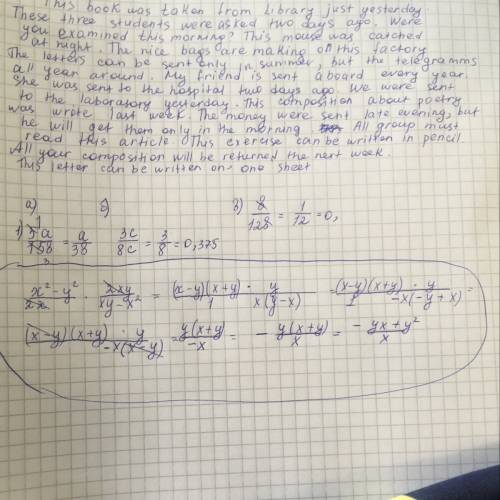 This book was taken from Library just yesterday
These three students were asked two days ago. Were
you examined this morning? This mouse was catched
at night. The nice bags are making on this factory
The letters can be sent only in summer, but the telegramms
all year around. My friend is sent aboard every year.
She was sent to the hospital two days ago. We were sent
to the laboratory yesterday. This composition about poetry
was wrote last week. The money were sent late evening, but
he will get them only in the morning. All group must
read this article. This exercise can be written in pencil
All your composition will be returned the next week.
This letter can be written on one sheet
а) б) в) 8/128 = 1/12 = 0,
1) = a/38 3c/8c = 3/8 = 0,375
x² - y² / 2x · 2xy / xy - x² = (x-y)(x+y) / 1 · y / x(y-x) = (x-y)(x+y) · y / 1 · -x(-y+x) =
(x-y)(x+y) · y / -x(x-y) = y(x+y) / -x = - y(x+y) / x = - yx + y² / x